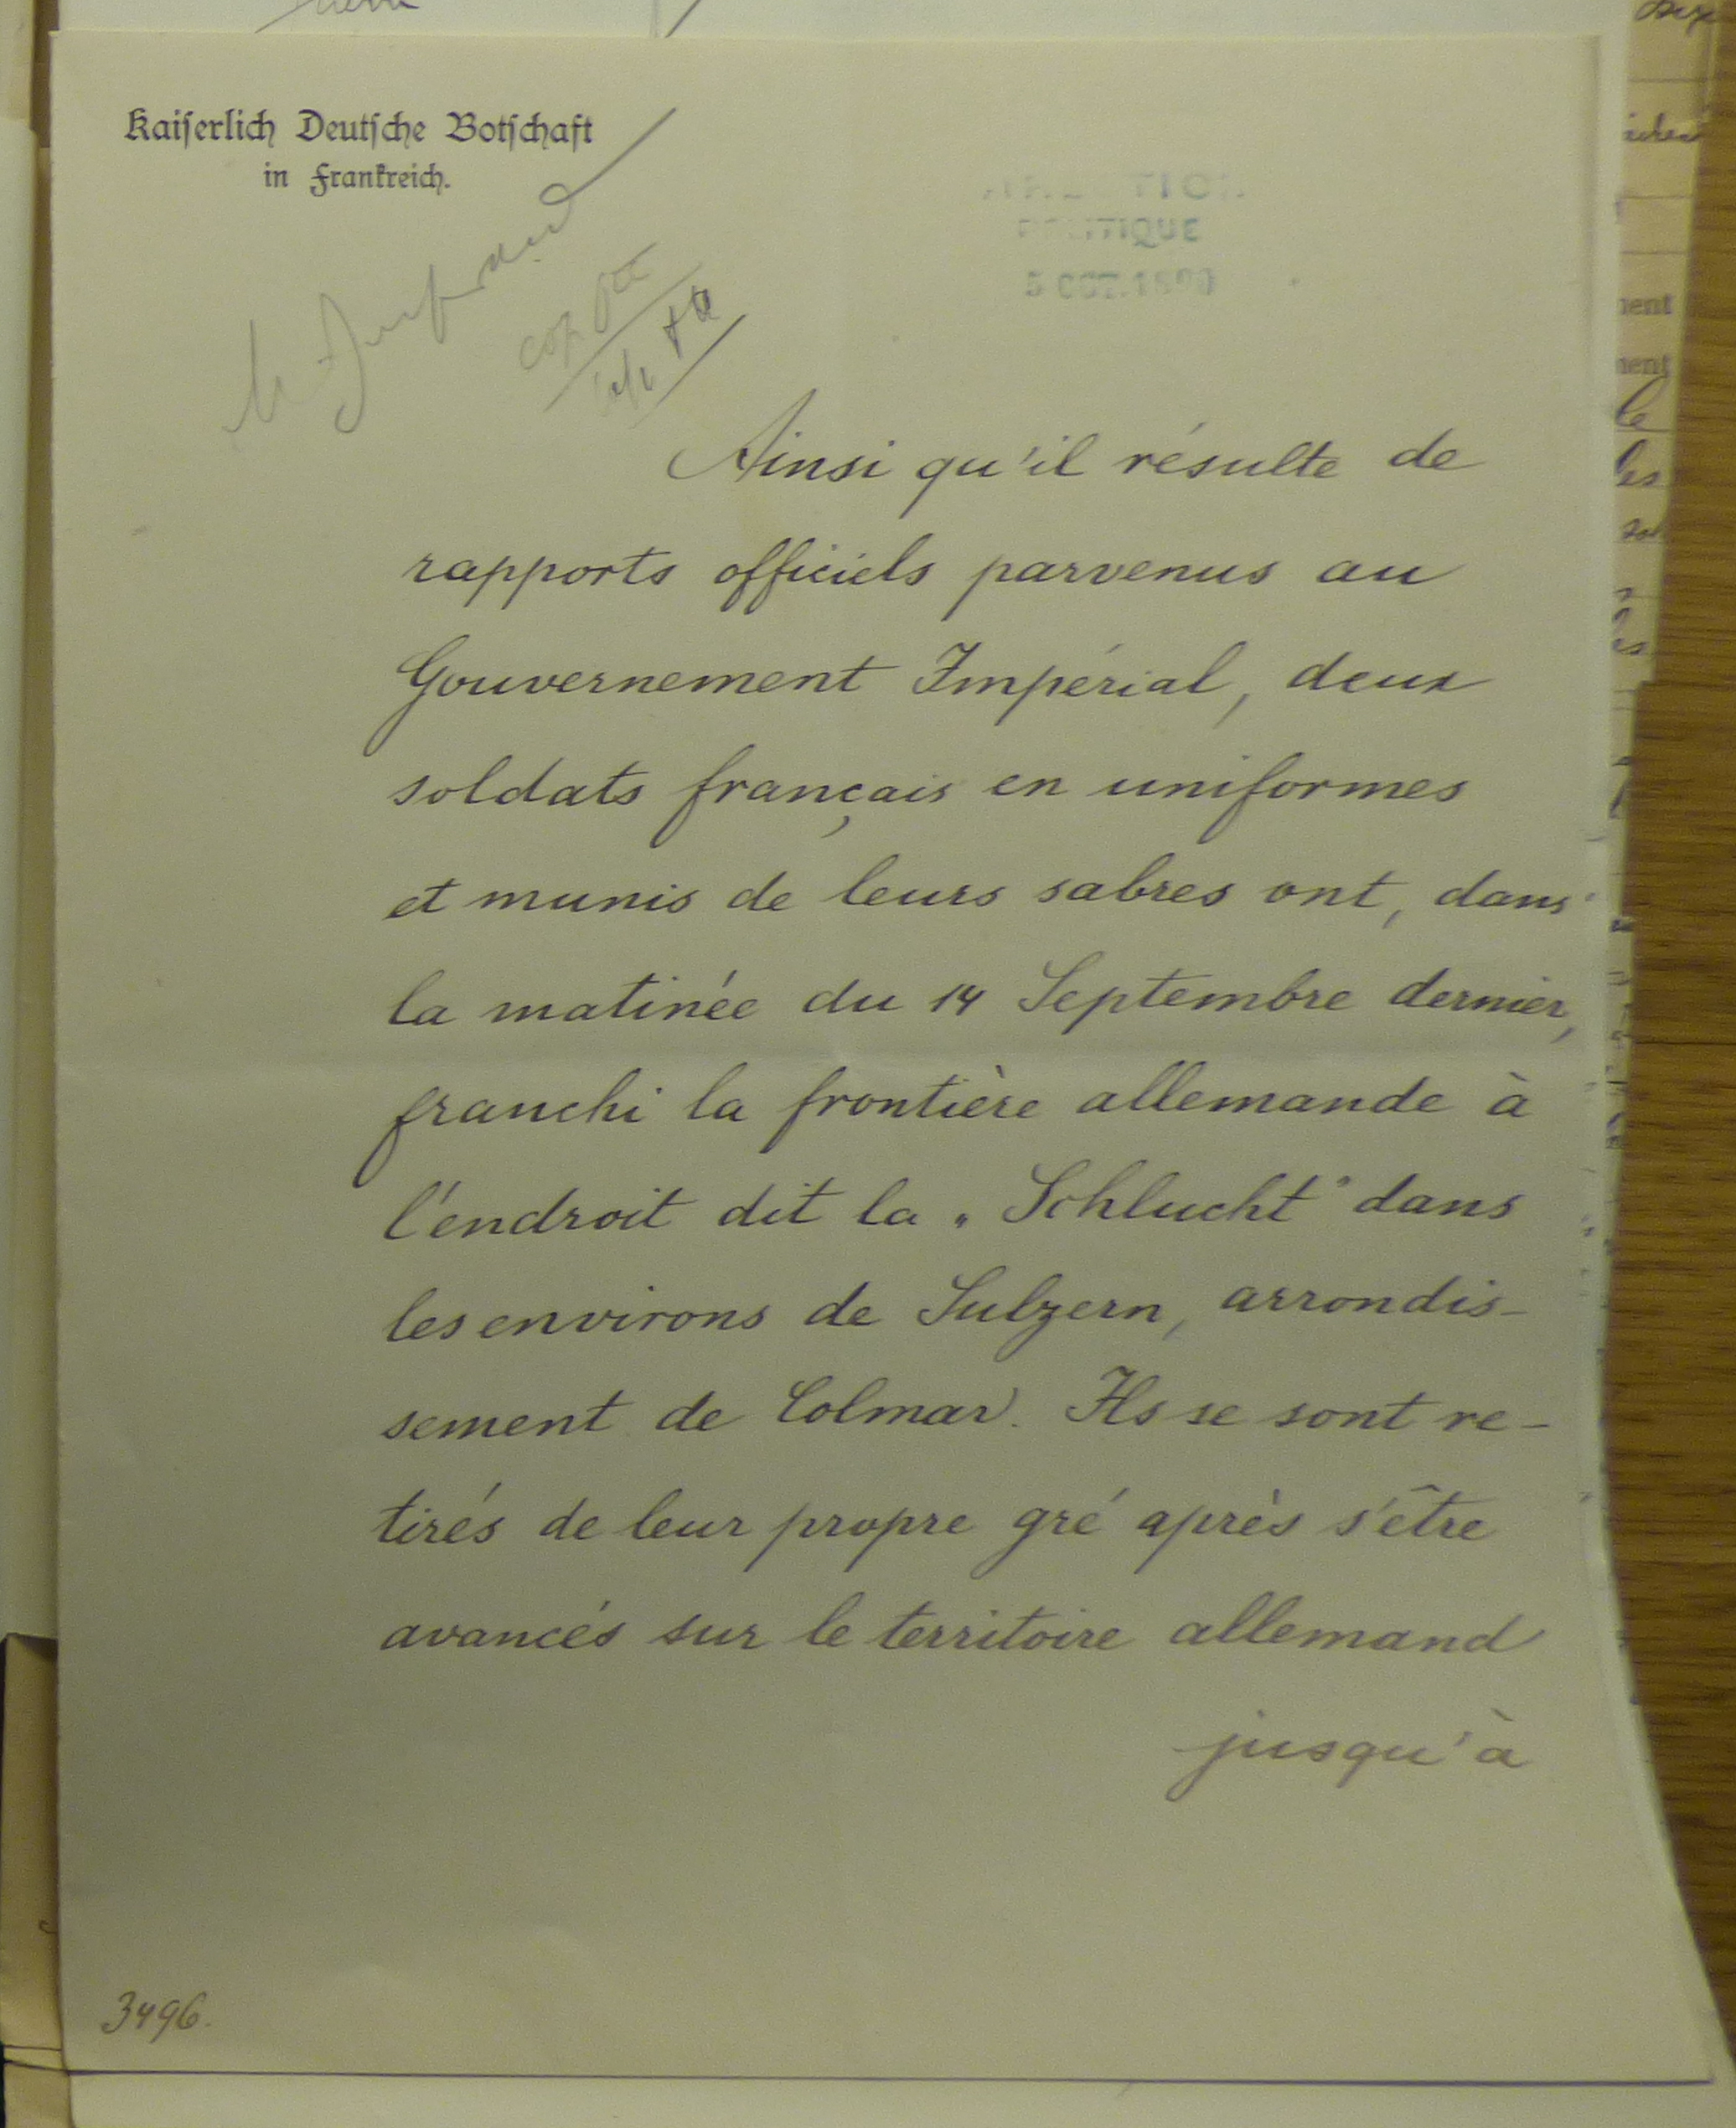 Kaiserlich Deutsche Botschaft
in Frankreich.
POLITIQUE
5 OCT. 18
Ainsi qu'il résulte de
rapports officiels parvenus au
Gouvernement Impérial, deux
soldats français en uniformes
et munis de leurs sabres ont, dans
la matinée du 14 Septembre dernier,
franchi la frontière allemande à
l'endroit dit la „Schlucht" dans
les environs de Sulzern, arrondis-
sement de Colmar. Ils se sont re-
tirés de leur propre gré après s'être
avancés sur le territoire allemand
jusqu'à
3496.